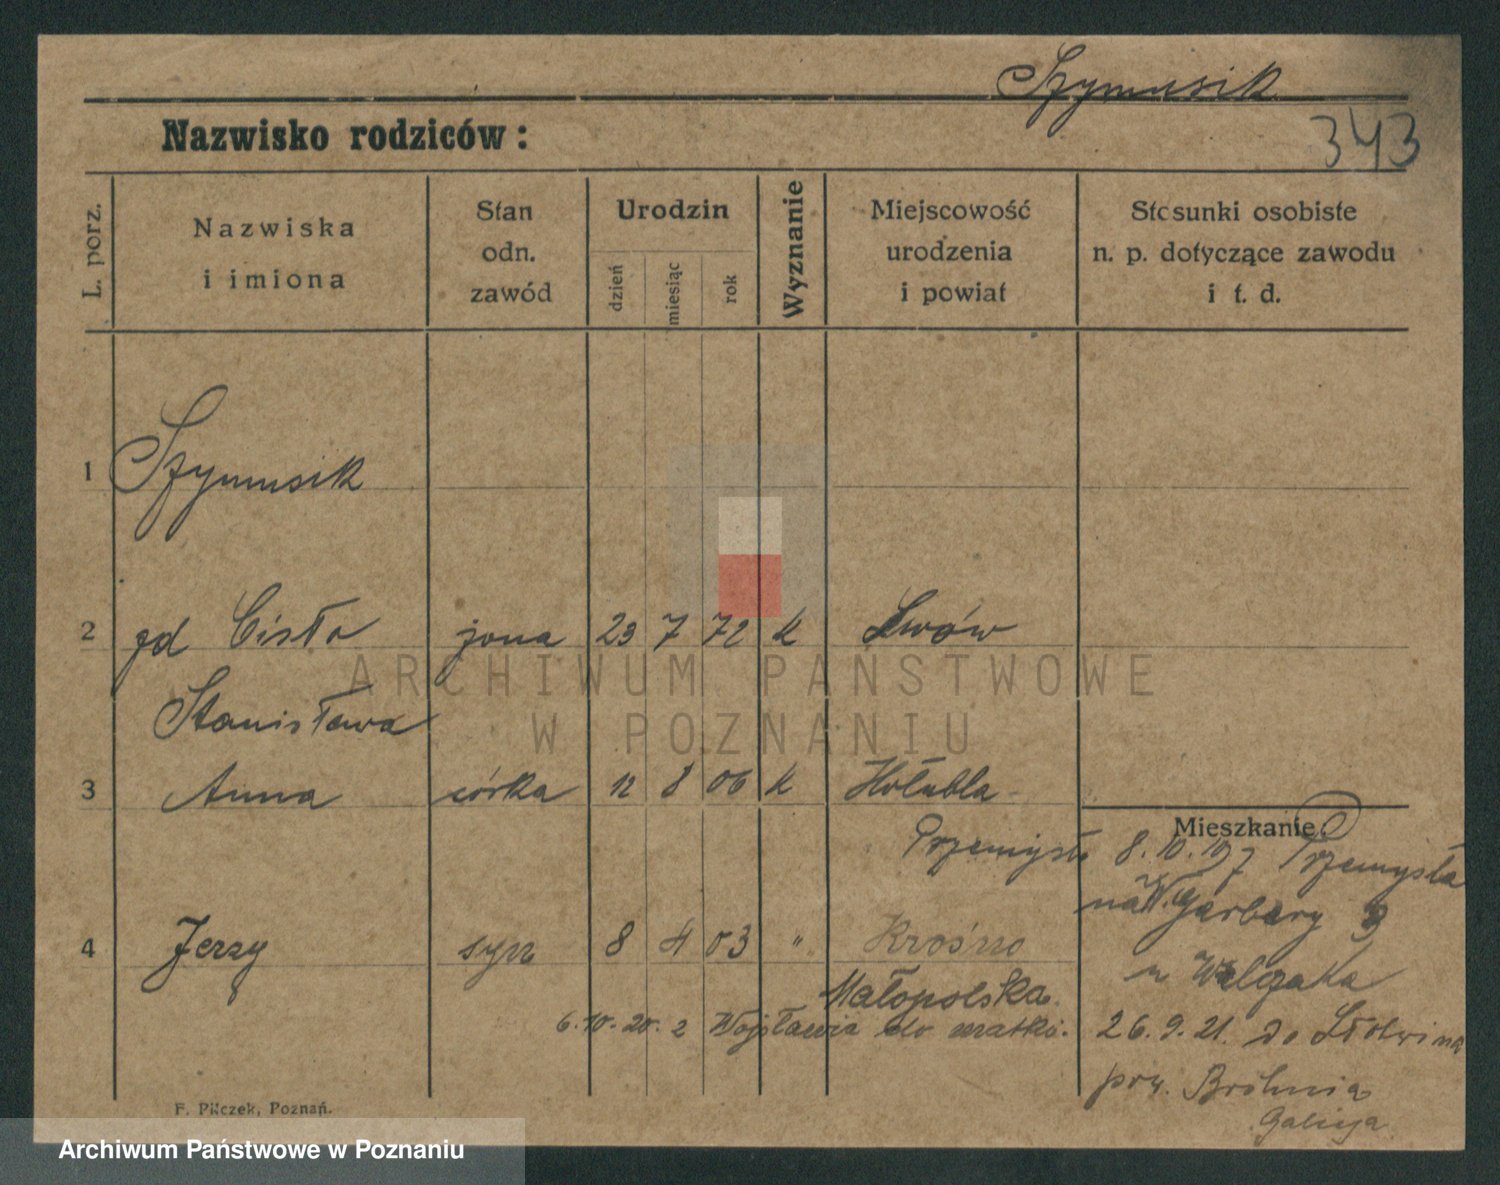 Szymusik
Nazwisko rodziców:
343
L. porz.
Nazwiska
i imiona
Stan
odn.
zawód
Urodzin
dzień
miesiąc
rok
Wyznanie
Miejscowość
urodzenia
i powiat
Stosunki osobiste
n. p. dotyczące zawodu
i t. d.
1 Szymusik
2 zd Cisło żona 23 7 72 K Lwów
Stanisława
3 Anna córka 12 8 06 K Hołubla
Przemyśl
Mieszkanie
8.10.19 z Przemyśla
na Garbary
u Walczaka
4 Jerzy syn 8 4 03 " Krosno
Małopolska
6.10.20. z Wojsławia do matki.
26.9.21. do Słotwina
pow. Galicja
F. Pilczek, Poznań.
ARCHIWUM PAŃSTWOWE
W POZNANIU
Archiwum Państwowe w Poznaniu